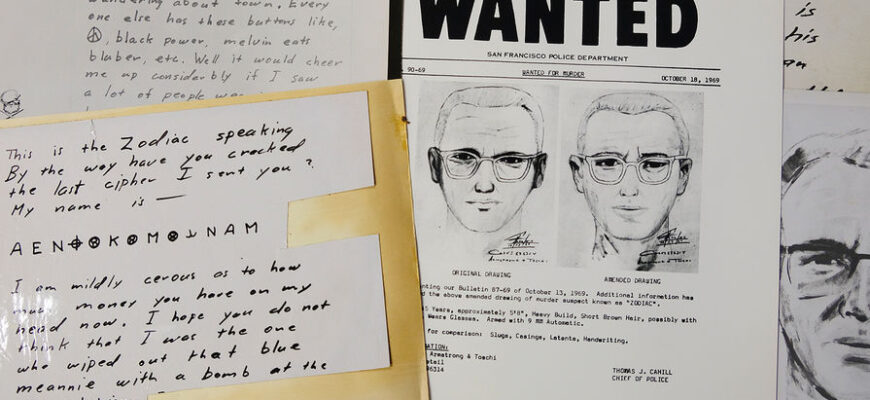 wandering about town. Every
one else has these buttons like,
☮, black power, melvin eats
bluber, etc. Well it would cheer
me up considerbly if I saw
a lot of people
This is the Zodiac speaking
By the way have you cracked
the last cipher I sent you?
My name is —
A E N ⌖ ⊗ K ⊗ M ⊗ ⅃ N A M
I am mildly cerous as to how
much money you have on my
head now. I hope you do not
think that I was the one
who wiped out that blue
meannie with a bomb at the
WANTED
SAN FRANCISCO POLICE DEPARTMENT
90-69 WANTED FOR MURDER OCTOBER 18, 1969
ORIGINAL DRAWING AMENDED DRAWING
our Bulletin 87-69 of October 13, 1969. Additional information has
the above amended drawing of murder suspect known as "ZODIAC".
Years, approximately 5'8", Heavy Build, Short Brown Hair, possibly with
Wears Glasses. Armed with 9 MM Automatic.
for comparison: Slugs, Casings, Latents, Handwriting,
Armstrong & Toschi
THOMAS J. CAHILL
CHIEF OF POLICE
is
his